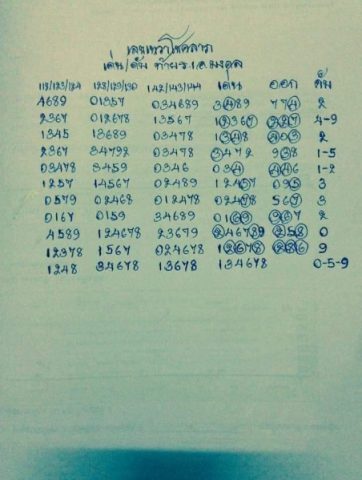 เลขเหวาโชคลาภ
เด่น/ดับ ท้าย ร.1.อ.มงคล
119/123/124 128/129/130 142/143/144 เด่น ออก ดับ
4689 01357 034689 3489 774 2
2367 012678 13567 12367 227 4-9
1345 13689 03478 1348 403 2
2367 34792 03478 3472 938 1-5
03478 3459 0346 034 446 1-2
1257 14567 02489 12457 095 3
0579 02468 012478 02478 567 3
0167 0159 34689 0169 967 2
4589 124678 23679 246789 258 0
12378 1567 024678 12678 286 9
1248 34678 13678 134678 0-5-9